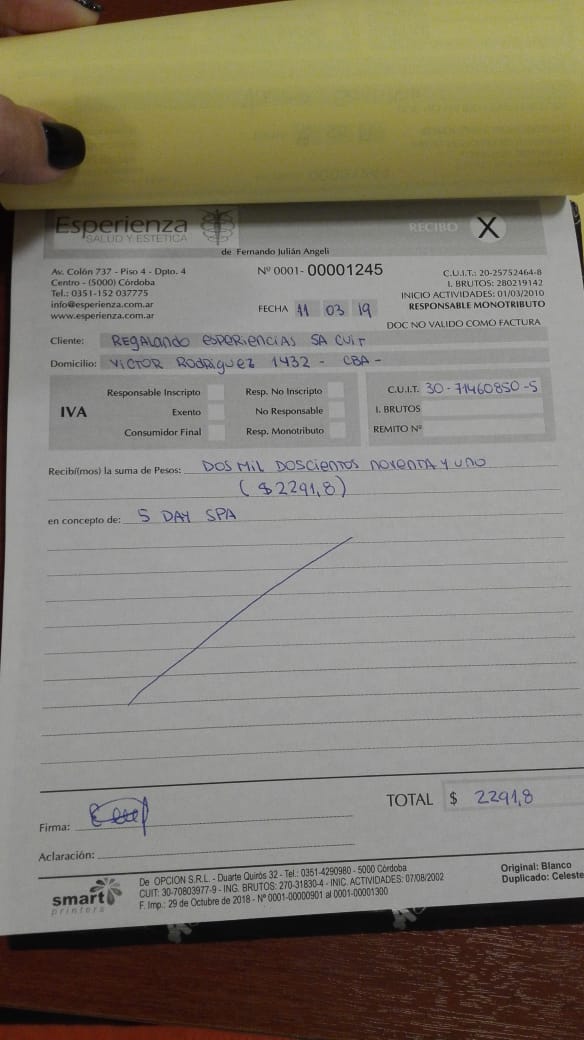 Esperienza
SALUD Y ESTETICA
RECIBO X
de Fernando Julián Angeli
Av. Colón 737 - Piso 4 - Dpto. 4
Centro - (5000) Córdoba
Tel.: 0351-152 037775
info@esperienza.com.ar
www.esperienza.com.ar
Nº 0001- 00001245
FECHA 11 03 19
C.U.I.T.: 20-25752464-8
I. BRUTOS: 280219142
INICIO ACTIVIDADES: 01/03/2010
RESPONSABLE MONOTRIBUTO
DOC NO VALIDO COMO FACTURA
Cliente: REGALANDO ESPERIENCIAS SA CUIT
Domicilio: VICTOR RODRIGUEZ 1432 - CBA -
IVA
Responsable Inscripto
Exento
Consumidor Final
Resp. No Inscripto
No Responsable
Resp. Monotributo
C.U.I.T. 30-71460850-5
I. BRUTOS
REMITO Nº
Recibí(mos) la suma de Pesos: DOS MIL DOSCIENTOS NOVENTA Y UNO
($2291,8)
en concepto de: 5 DAY SPA
TOTAL $ 2291,8
Firma:
Aclaración:
smart
printers
De OPCION S.R.L. - Duarte Quirós 32 - Tel.: 0351-4290980 - 5000 Córdoba
CUIT: 30-70803977-9 - ING. BRUTOS: 270-31830-4 - INIC. ACTIVIDADES: 07/08/2002
F. Imp.: 29 de Octubre de 2018 - Nº 0001-00000901 al 0001-00001300
Original: Blanco
Duplicado: Celeste